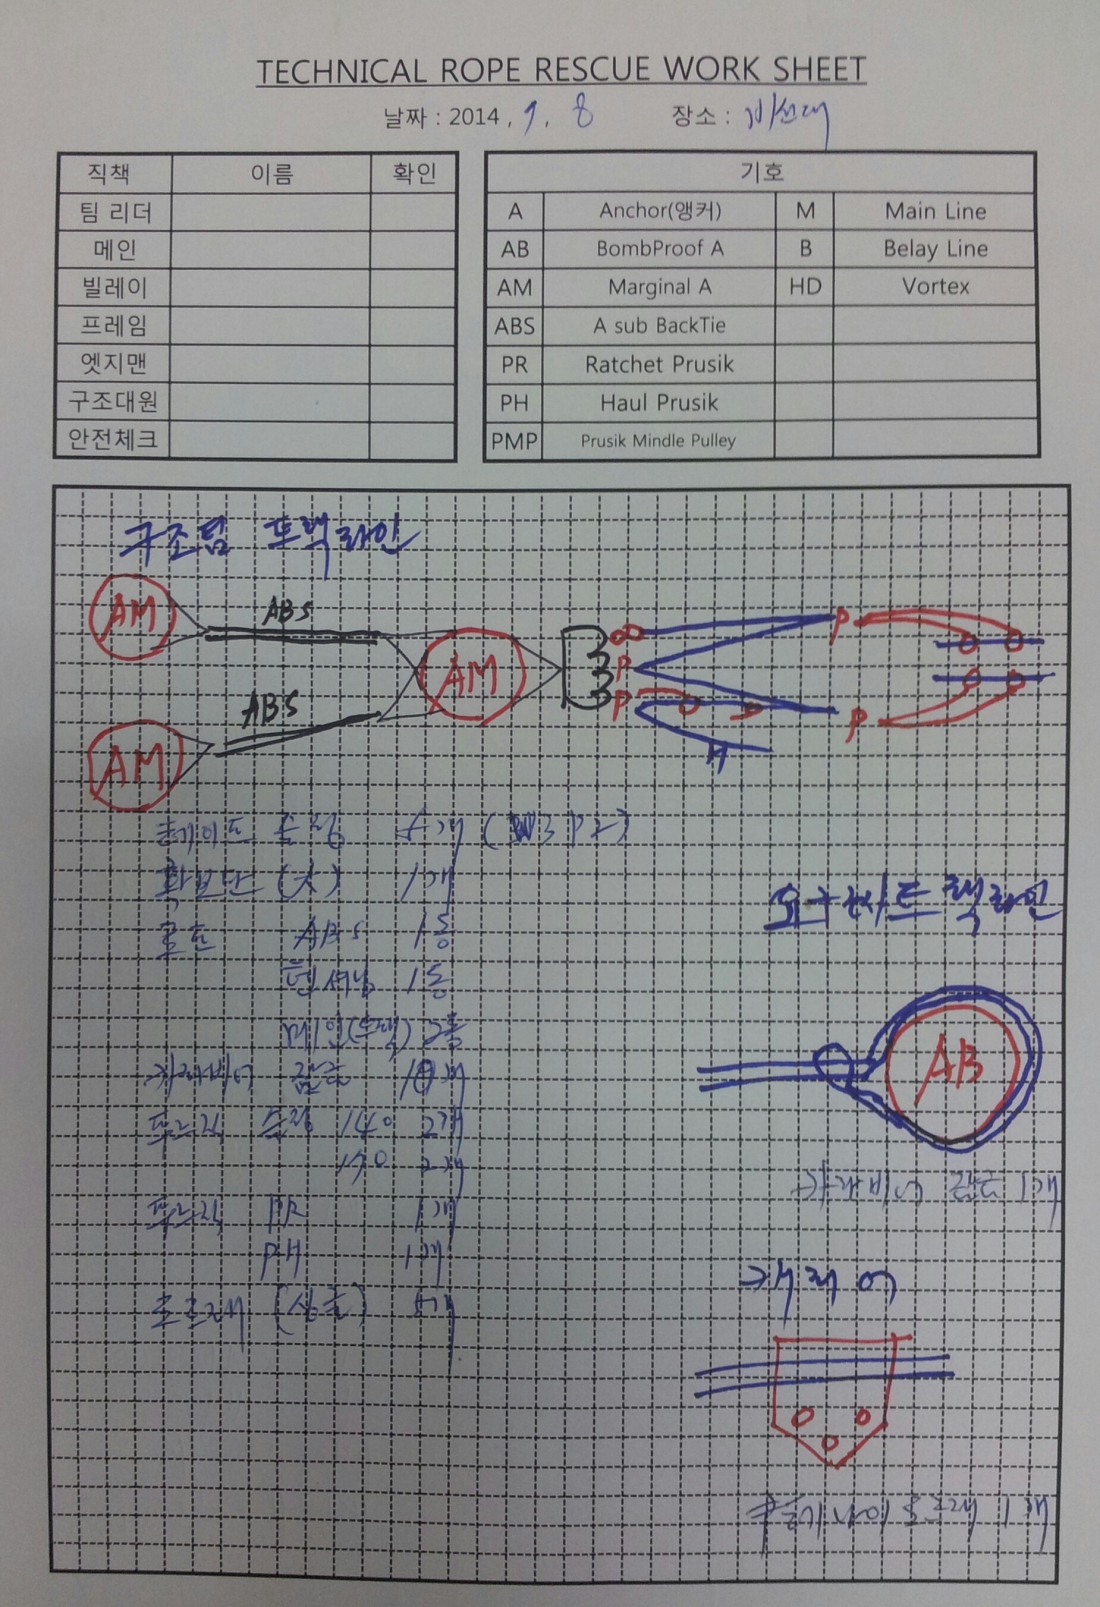 TECHNICAL ROPE RESCUE WORK SHEET
날짜 : 2014 , 9 , 8 장소 :
직책 이름 확인
팀 리더
메인
빌레이
프레임
엣지맨
구조대원
안전체크
기호
A Anchor(앵커) M Main Line
AB BombProof A B Belay Line
AM Marginal A HD Vortex
ABS A sub BackTie
PR Ratchet Prusik
PH Haul Prusik
PMP Prusik Mindle Pulley
구조팀 트랙라인
AM ABS
AM
ABS
AM
P P
P P
H
확보판 (大) 1개
로프 ABS 1동
텐셔닝 1동
메인(트랙) 2동
카라비너 잠금
프루직 순정 140 2개
170 2개
프루직 PR 1개
PH 1개
도르래 (싱글)
트랙라인
AB
카라비너 잠금 1개
캐리어
도르래 1개